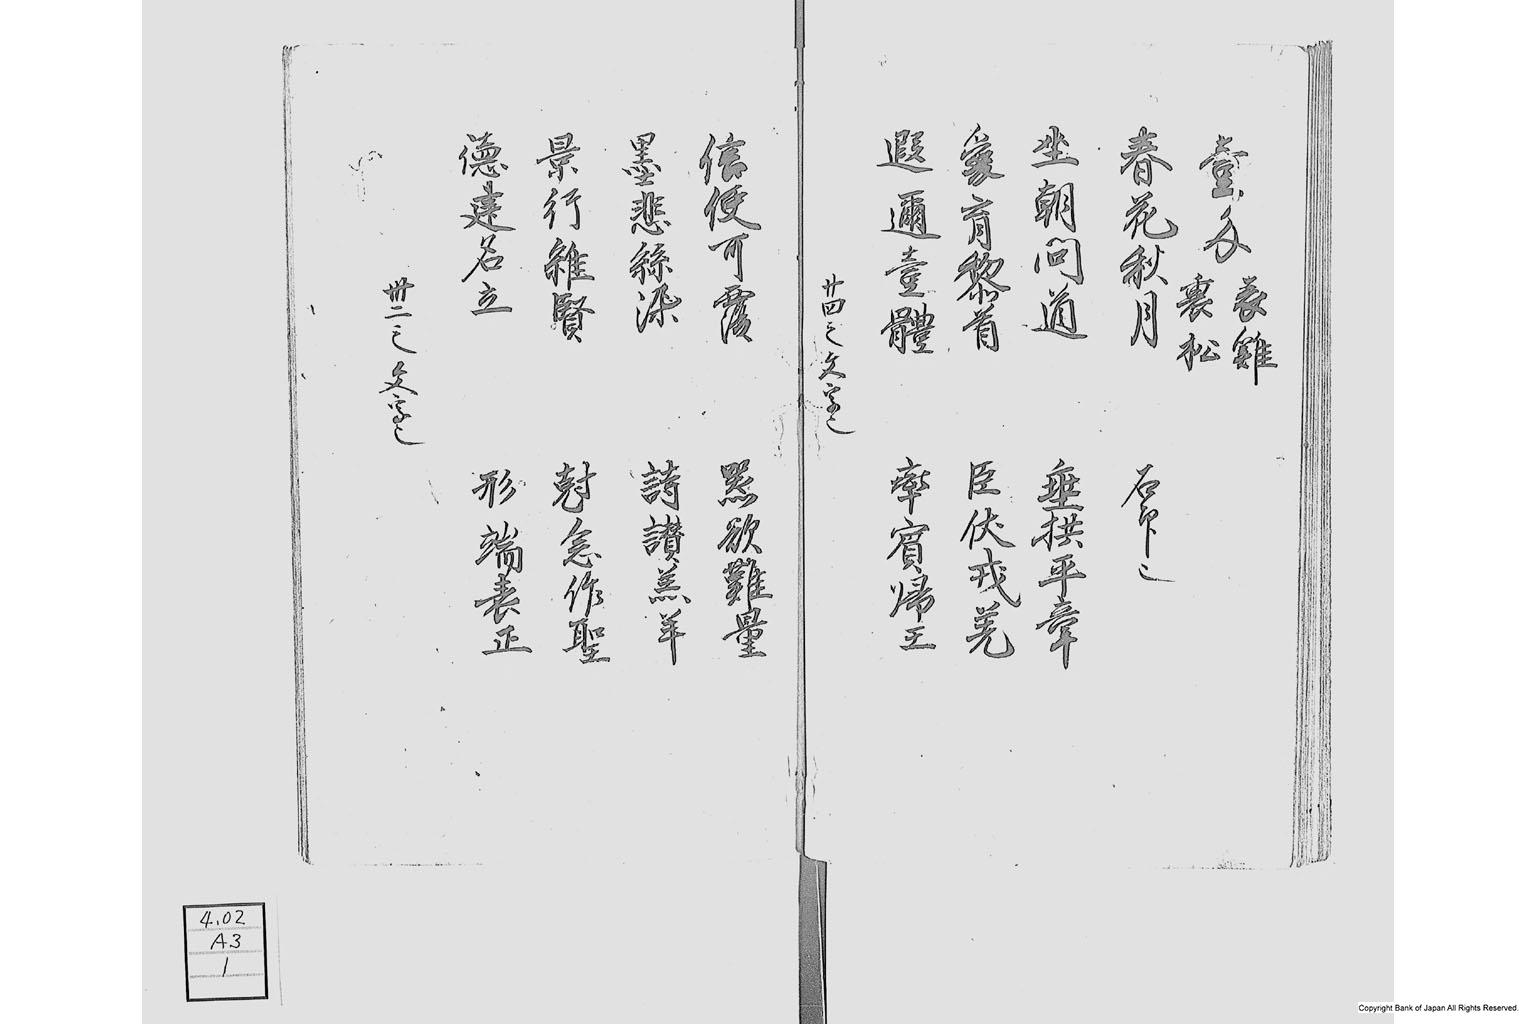 壹匁
表雞
裏松
春花秋月
石印之
坐朝問道
垂拱平章
愛育黎首
臣伏戎羌
遐邇壹體
率賓歸王
廿四之文字之
信使可覆
器欲難量
墨悲絲染
詩讃羔羊
景行維賢
尅念作聖
德建名立
形端表正
卅二之文字之
4.02
A3
1
Copyright Bank of Japan All Rights Reserved.